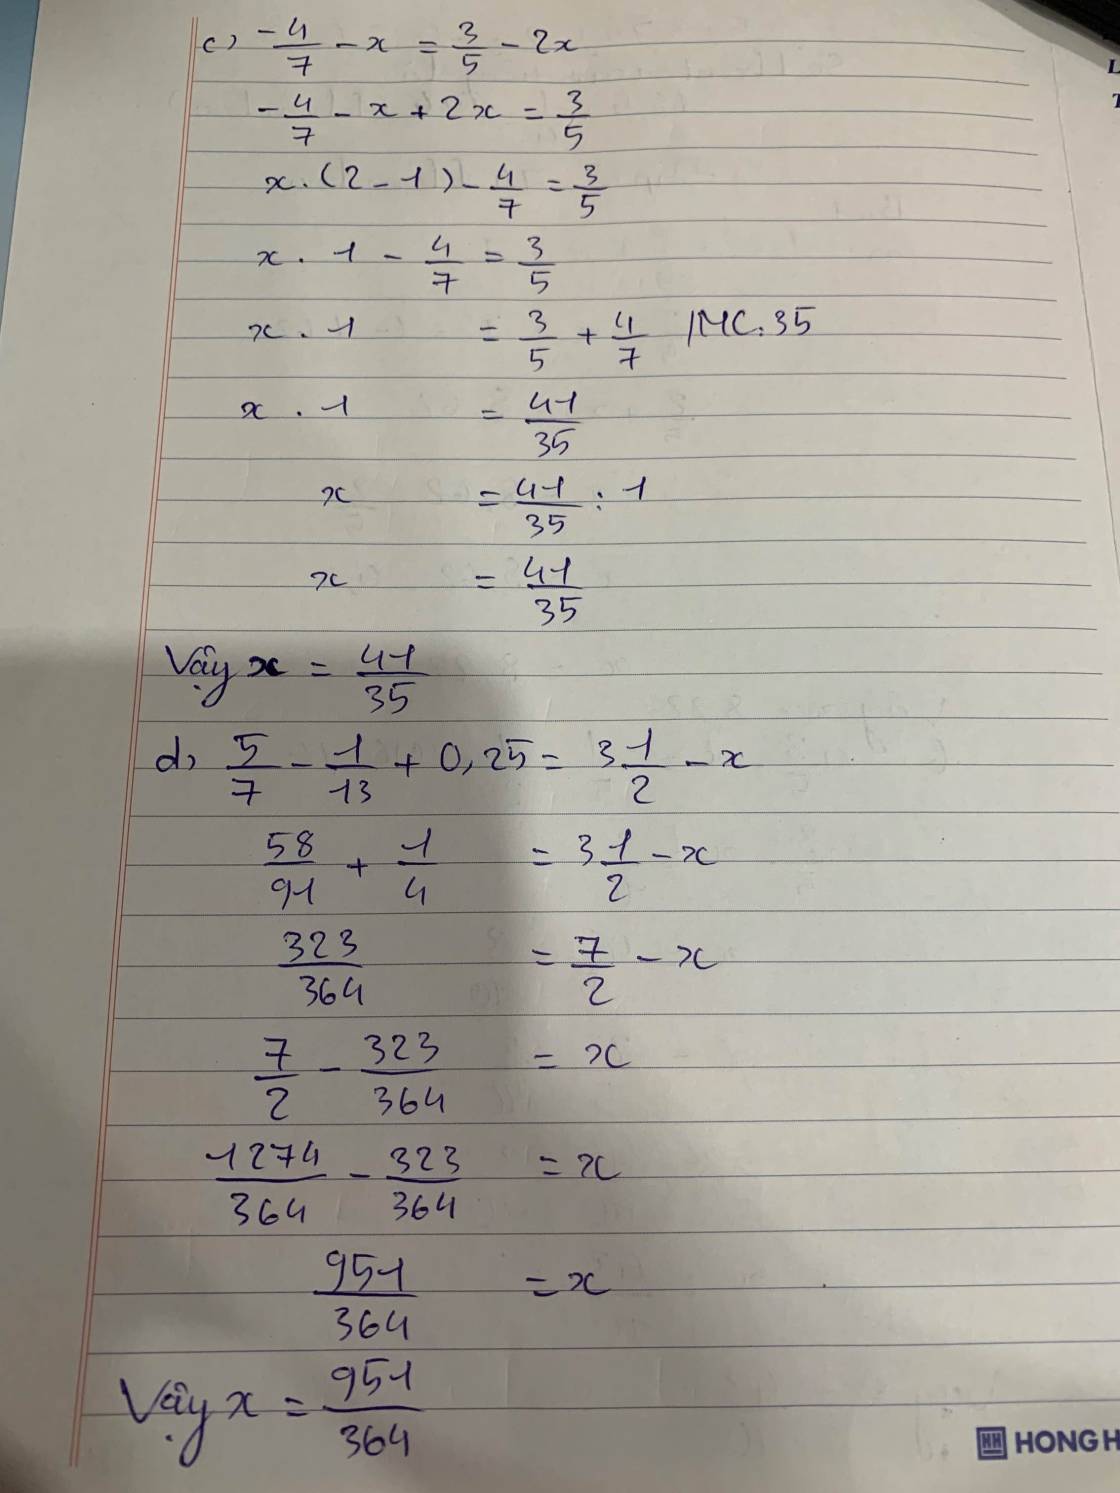 c) -4/7 - x = 3/5 - 2x
-4/7 - x + 2x = 3/5
x . (2 - 1) - 4/7 = 3/5
x . 1 - 4/7 = 3/5
x . 1 = 3/5 + 4/7 /MC: 35
x . 1 = 41/35
x = 41/35 : 1
x = 41/35
Vậy x = 41/35
d) 5/7 - 1/13 + 0,25 = 3 1/2 - x
58/91 + 1/4 = 3 1/2 - x
323/364 = 7/2 - x
7/2 - 323/364 = x
1274/364 - 323/364 = x
951/364 = x
Vậy x = 951/364
HONG H